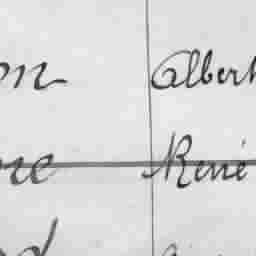 on Albert
re René